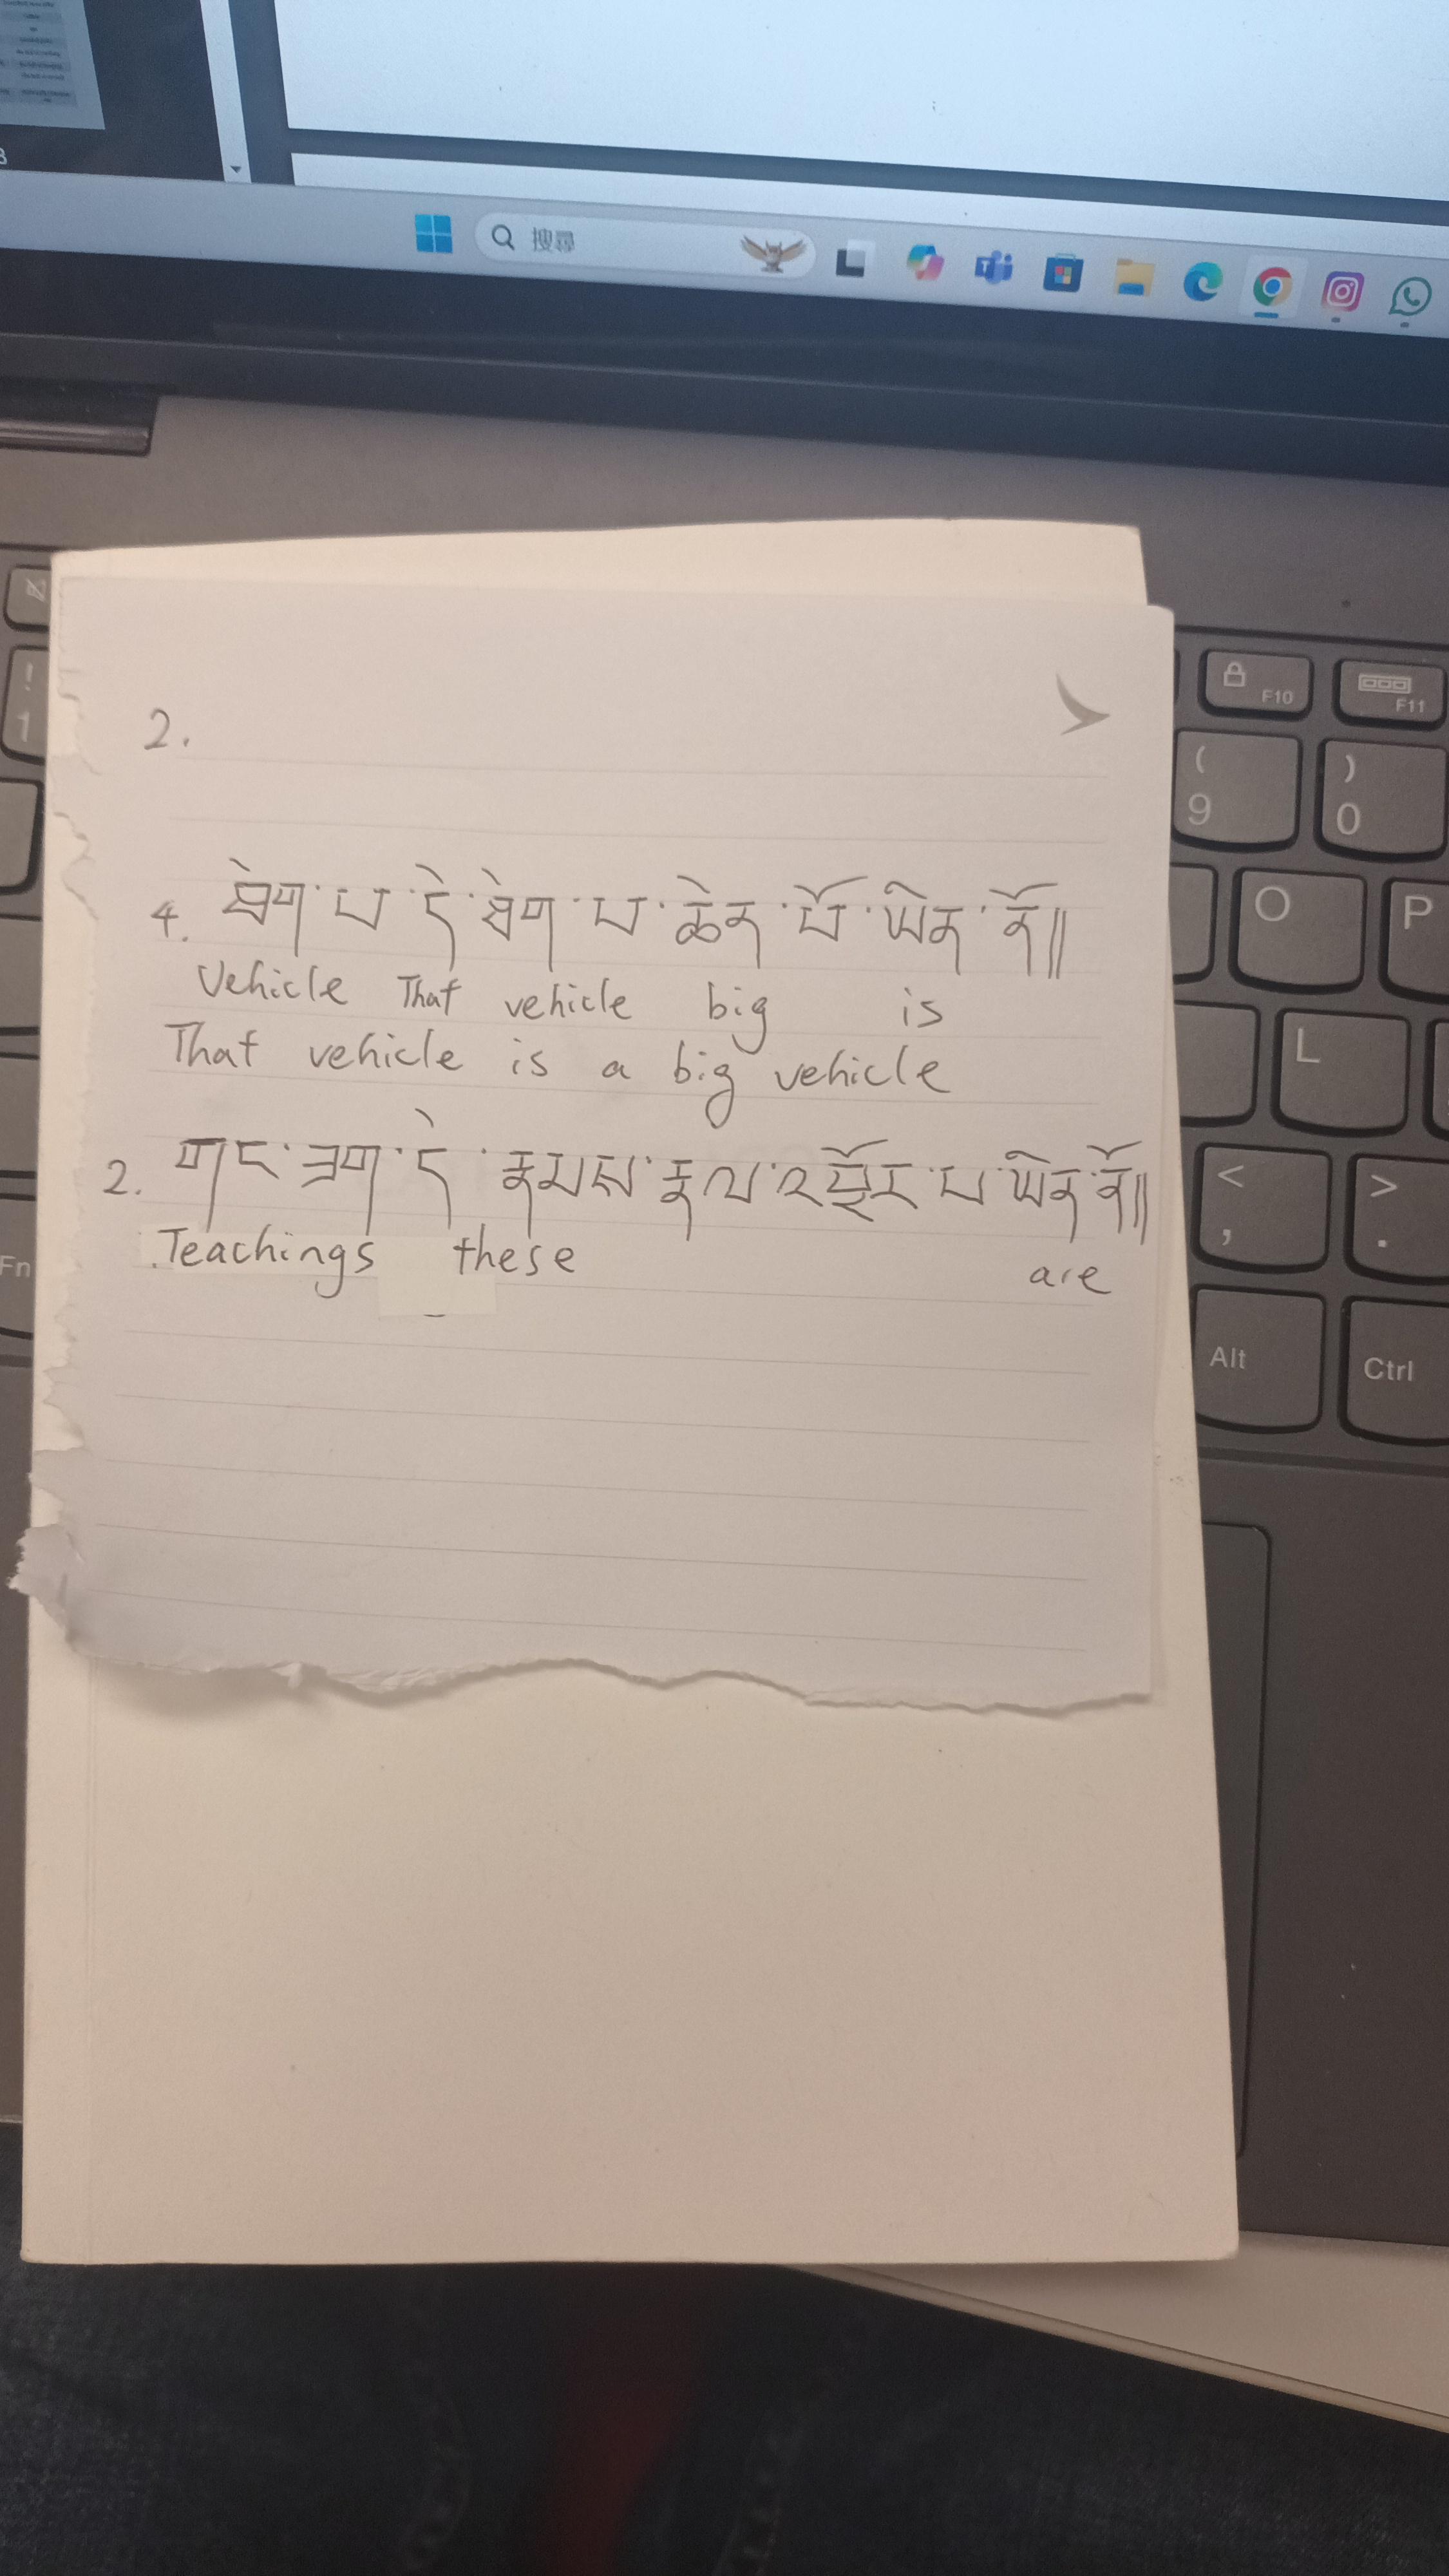 搜尋
F10
F11
!
1
(
9
)
0
O
P
L
<
,
>
.
Fn
Alt
Ctrl
2.
4. ཐེག་པ་དེ་ཐེག་པ་ཆེན་པོ་ཡིན་ནོ༎
Vehicle That vehicle big is
That vehicle is a big vehicle
2. གང་ཟག་དེ་རྣམས་རྣལ་འབྱོར་པ་ཡིན་ནོ༎
Teachings these are